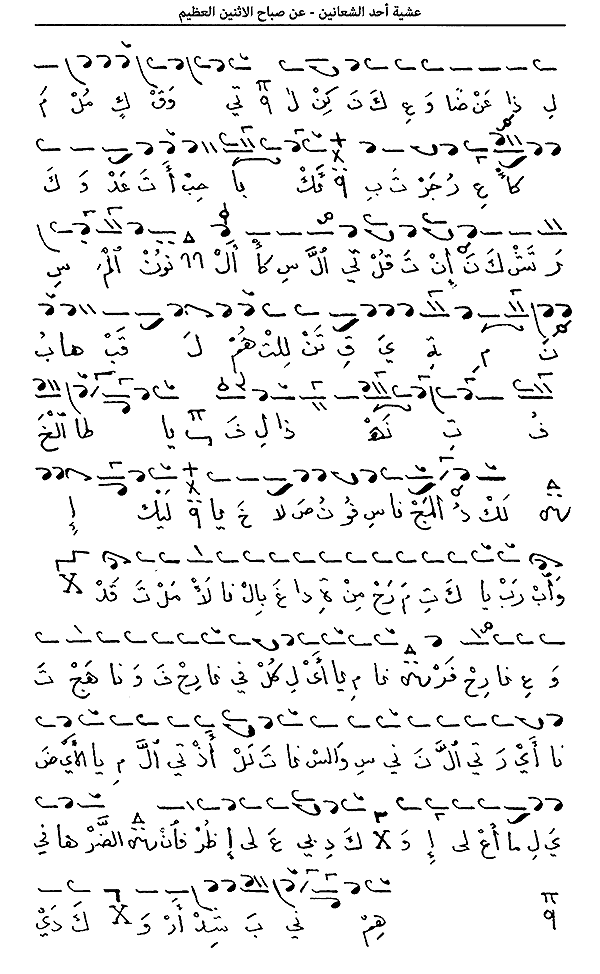 عشية أحد الشعانين - عن صباح الاثنين العظيم
لِ ذا عَنْ ضا وَ عِ كَ تَ كِنْ لَ تي وَقْ كٍ مُلْ مَ
كاْ عِ رُجَزْ تَ بِ مَّكْ يا حِبْ أَ تَ عَدْ وَ كَ
مَ تَشْ كَ نَ إِنْ تَ قُلْ تي الْلَ سِ كأْ أَلْ نونُ الْمَ سِ
نَ مِ ةِ يَ قِ تَنْ لِلتْ هُمْ لَ قَبْ هابُ
فُ تِ نَهْ ذا لِ خَ يا طا الْخَ
لَكْ دُ الْمَجْ ناسِ فو نُ صَ لا خَ يا لَيْكْ إِ
وَأَبْ رَبْ يا كَ تِ مَ رَحْ مِنْ ةِ داغَ بِالْ نا لأْ مَلْ تَ قَدْ
وَ عِ نا رِحْ فَرْ نا مِ يا أَيْ لِ كُلْ في نا رِحْ فَ وَ نا هَجْ تَ
نا أَيْ رَ تي الْلَ نَ ني سِ وَالسْ نا تَ لَلْ أَذْ تي الْلَ مِ يا الأَيْ ضَ
يَ لِ ما أَعْ لى إِ وَ كَ دِ بي عَ لى إِ ظُرْ فَانْ الضَّرْ ها في
هِمْ ني بَ شِدْ أَرْ وَ كَ دَيْ